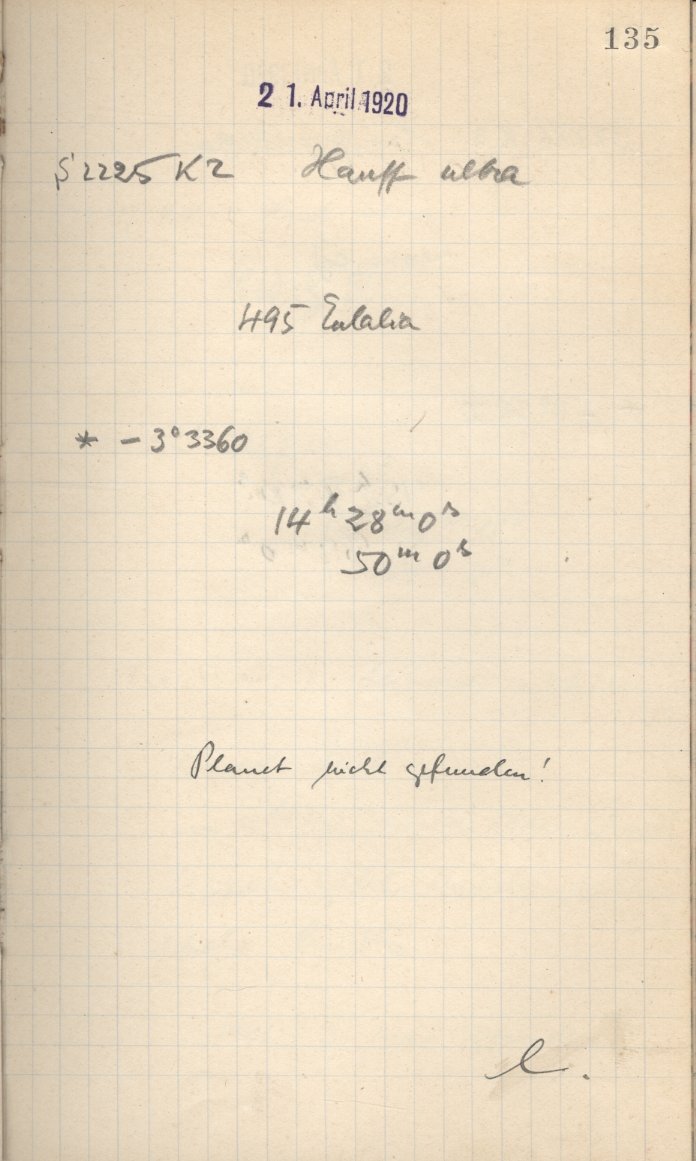 135
21. April 1920
S 2225 K2 Hauff ultra
495 Eulalia
* - 3° 3360
14ʰ 28ᵐ 0ˢ
50ᵐ 0ˢ
Planet nicht gefunden!